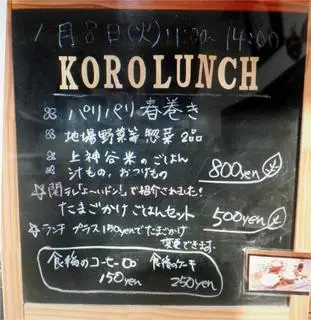 1月8日(火) 11:00~14:00
KOROLUNCH
パリパリ春巻き
地場野菜等惣菜2品
上神谷米のごはん
汁もの、おつけもの
800yen
☆関テレ「よ〜いドン!」で紹介されました!
たまごかけごはんセット
500yen
☆ランチ プラス150yenでたまごかけ
変更できます.
食後のコーヒー 食後のケーキ
150yen 250yen